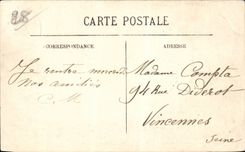 28
CARTE POSTALE
CORRESPONDANCE
ADRESSE
Je rentre
Nos amitiés
C. M.
Madame Compta
94 Rue Diderot
Vincennes
Seine